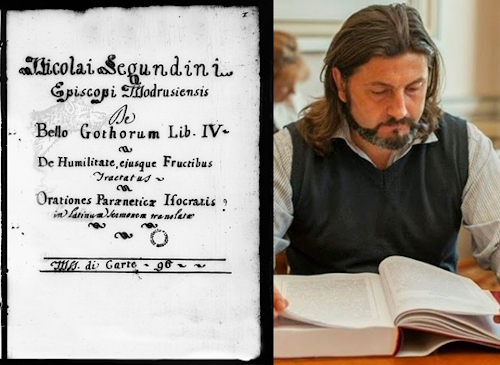 Nicolai Segundini
Episcopi Modrusiensis
De
Bello Gothorum Lib. IV
De Humilitate, ejusque Fructibus
Tractatus
Orationes Paræneticæ Isocratis
in latinum sermonem translatæ
di Carte 96